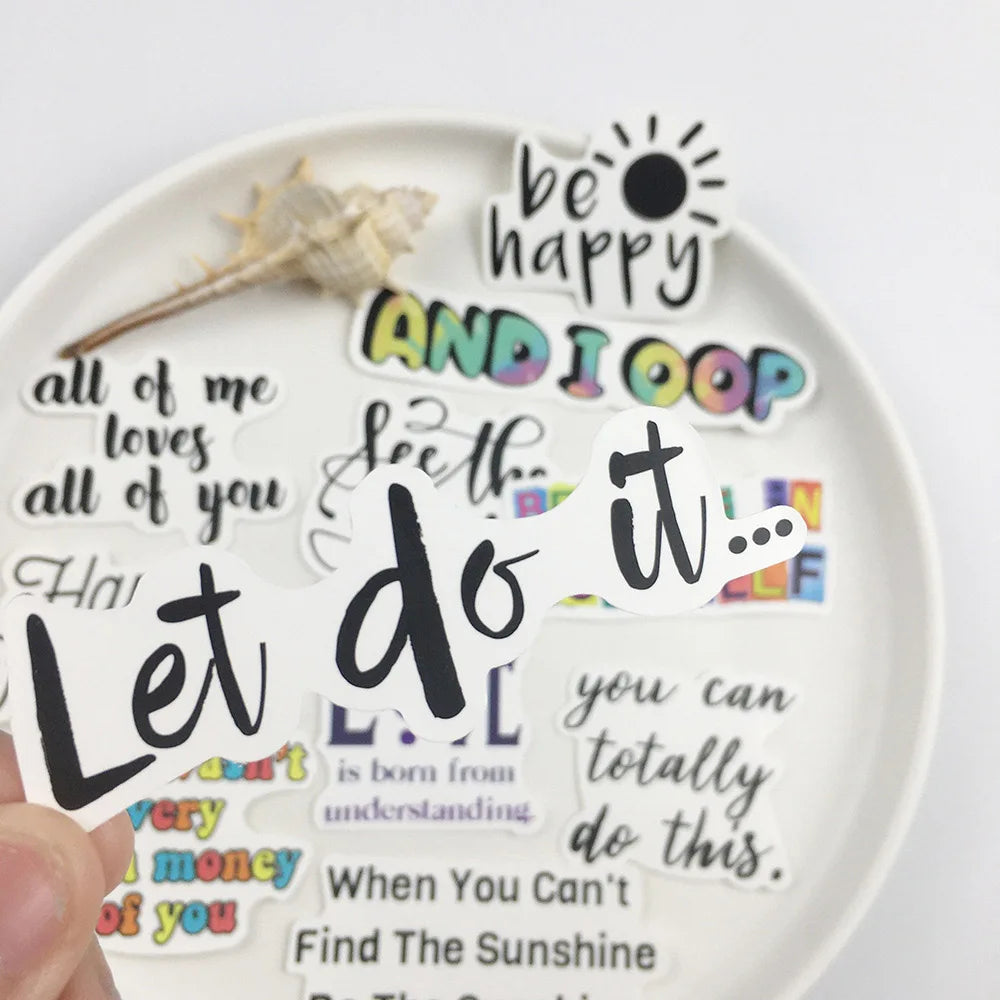 be
happy
AND I OOP
all of me
loves
all of you
See the
Let do it...
is born from
understanding.
you can
totally
do this.
very
money
of you
When You Can't
Find The Sunshine